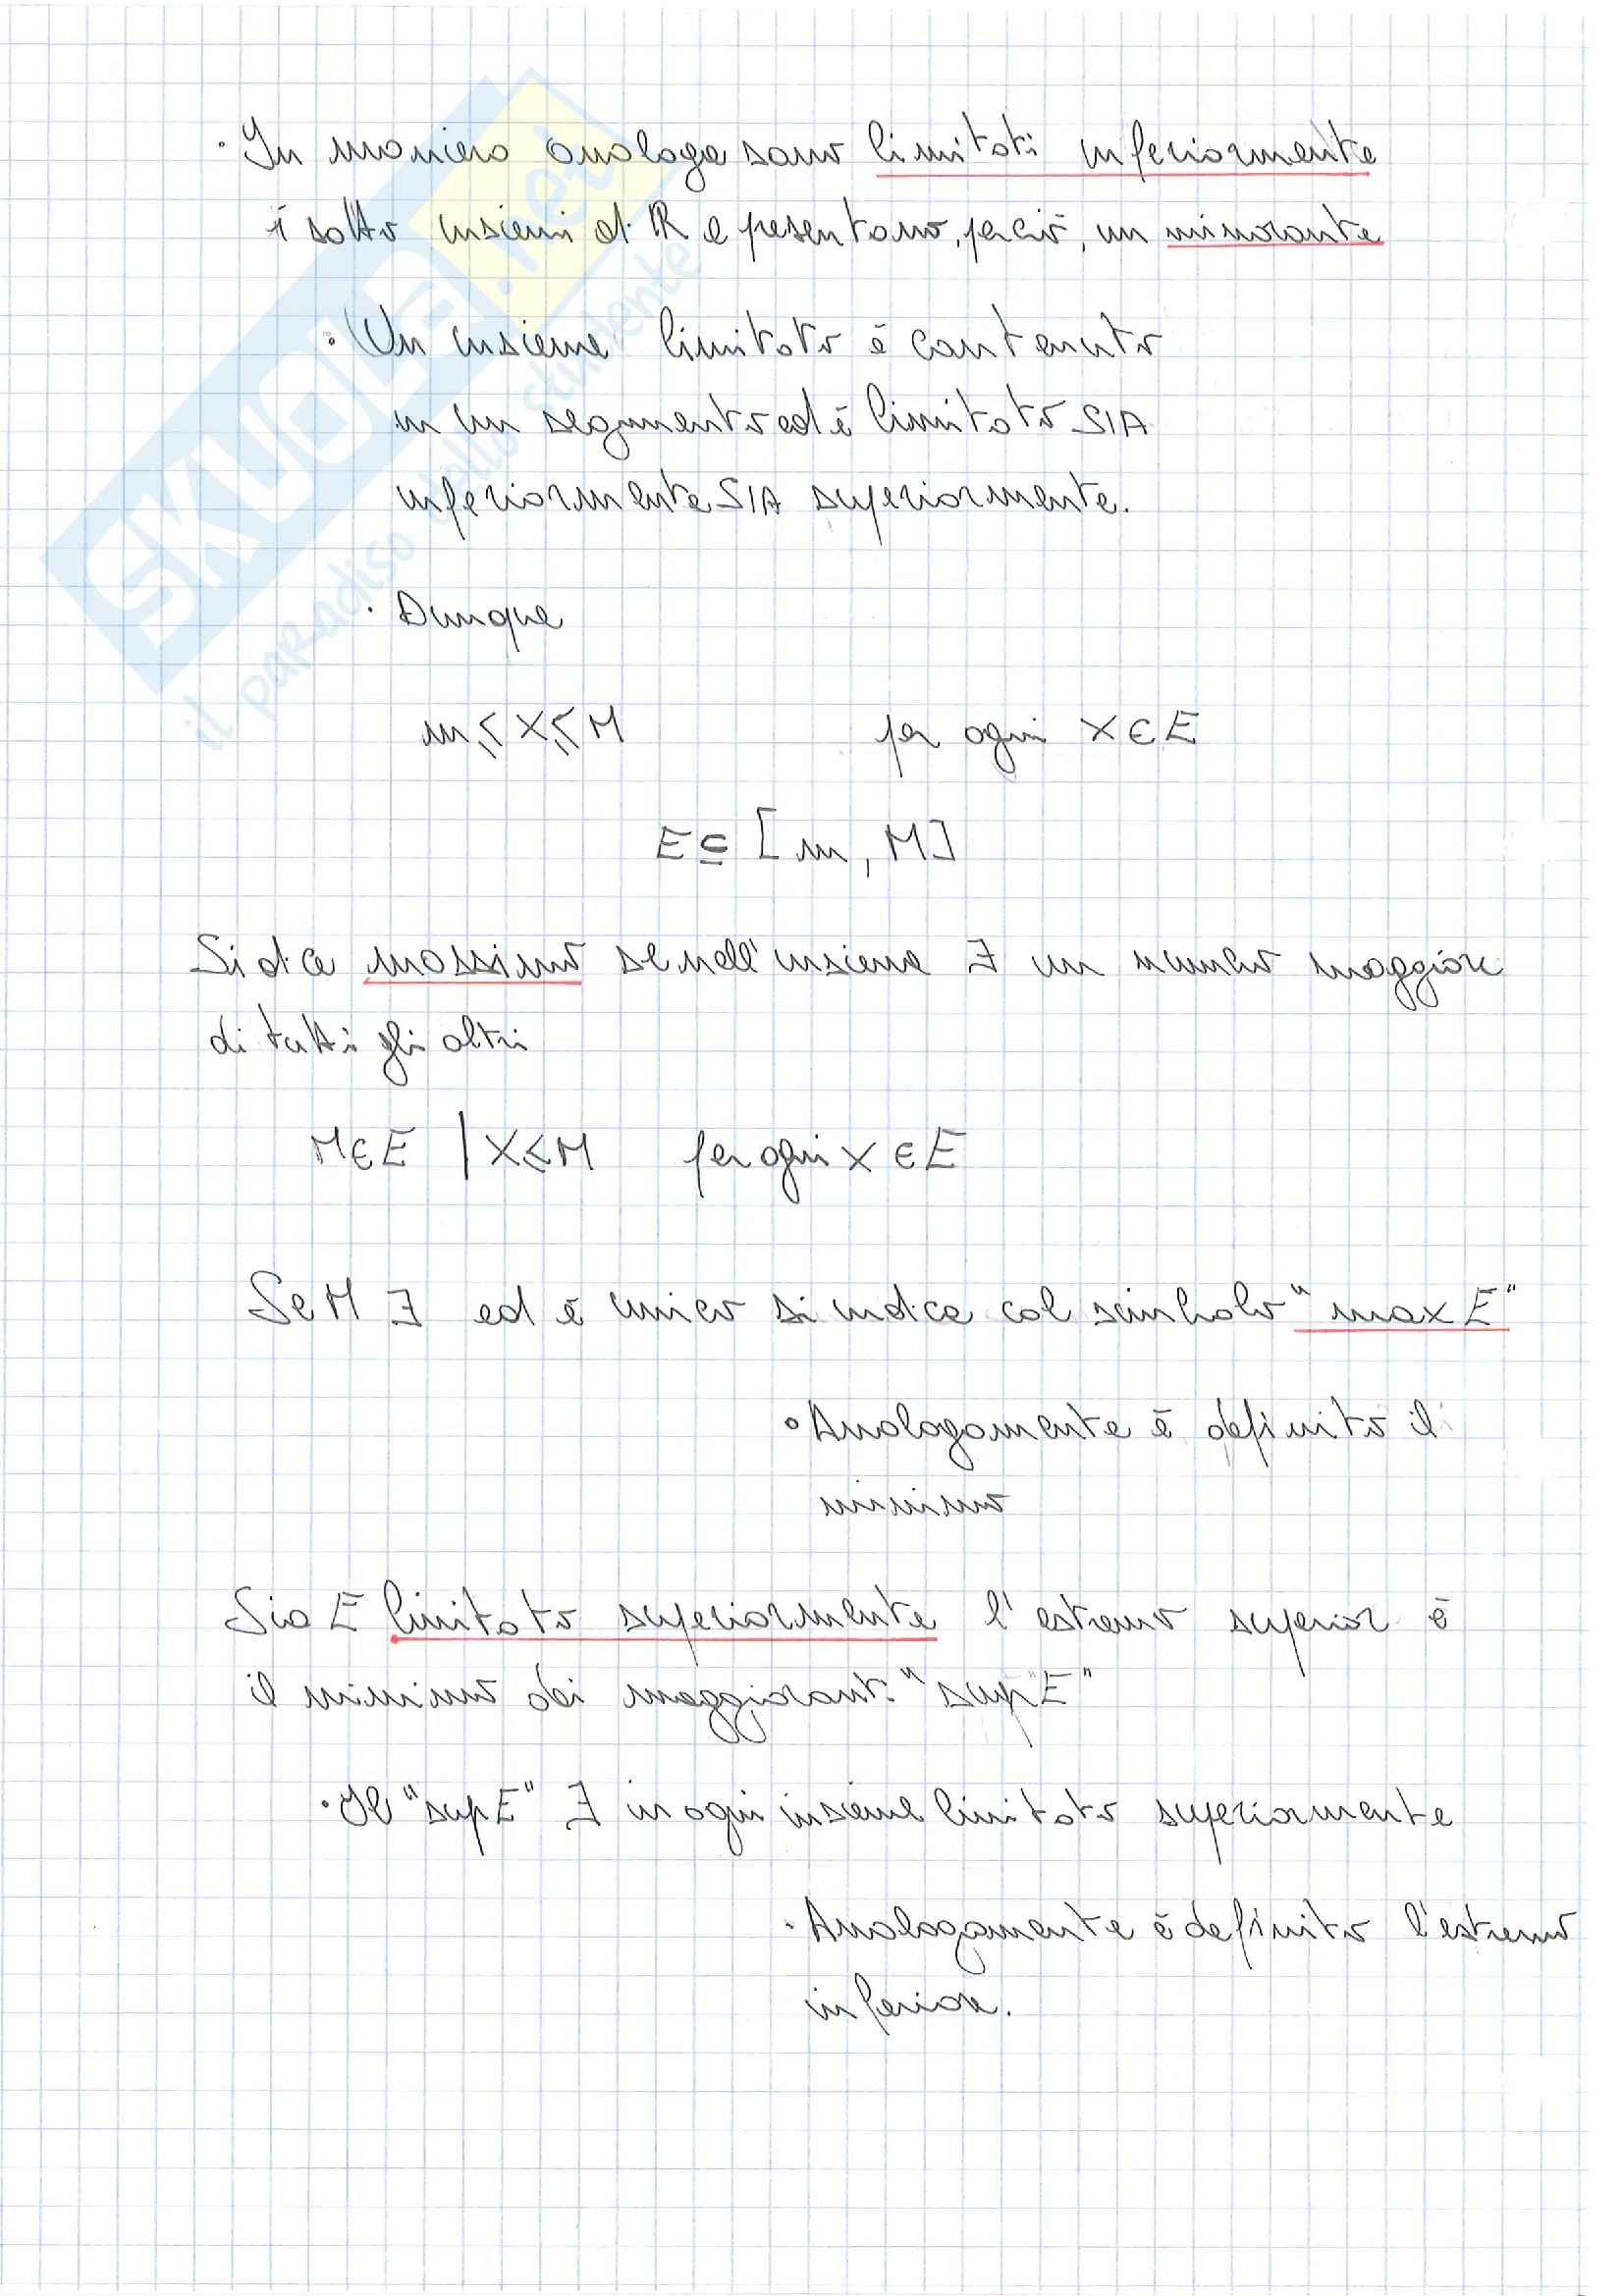 · In maniera analoga sono limitati inferiormente
i sotto insiemi di ℝ e presentano, perciò, un minorante
· Un insieme limitato è contenuto
in un segmento ed è limitato SIA
inferiormente SIA superiormente.
· Dunque
m ≤ X ≤ M per ogni X ∈ E
E ⊆ [m, M]
Si dice massimo se nell'insieme ∃ un numero maggiore
di tutti gli altri
M ∈ E | X ≤ M per ogni X ∈ E
Se M ∃ ed è unico si indica col simbolo "max E"
· Analogamente è definito il
minimo
Sia E limitato superiormente l'estremo superior è
il minimo dei maggioranti "sup E"
· Il "sup E" ∃ in ogni insieme limitato superiormente
· Analogamente è definito l'estremo
inferiore.
SKUOLA.net
il paradiso dello studente